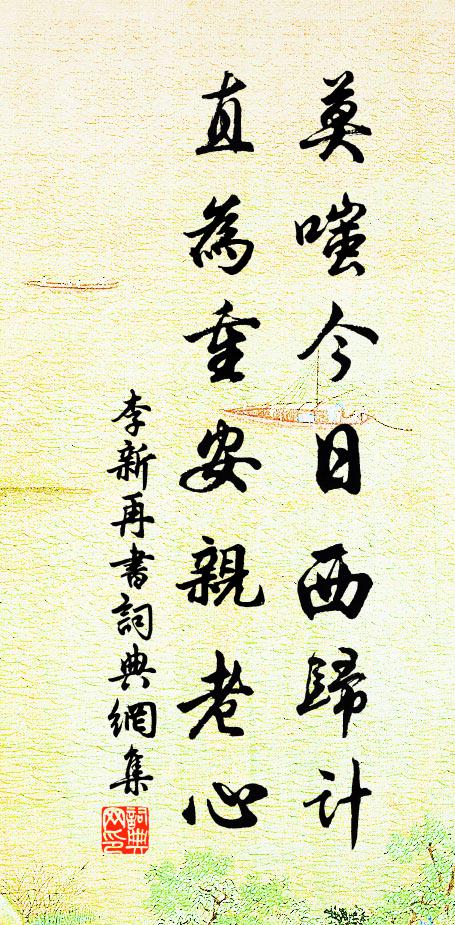 莫嗤今日西歸計
直為重安親老心
李新再書詞典網集
詞典網印